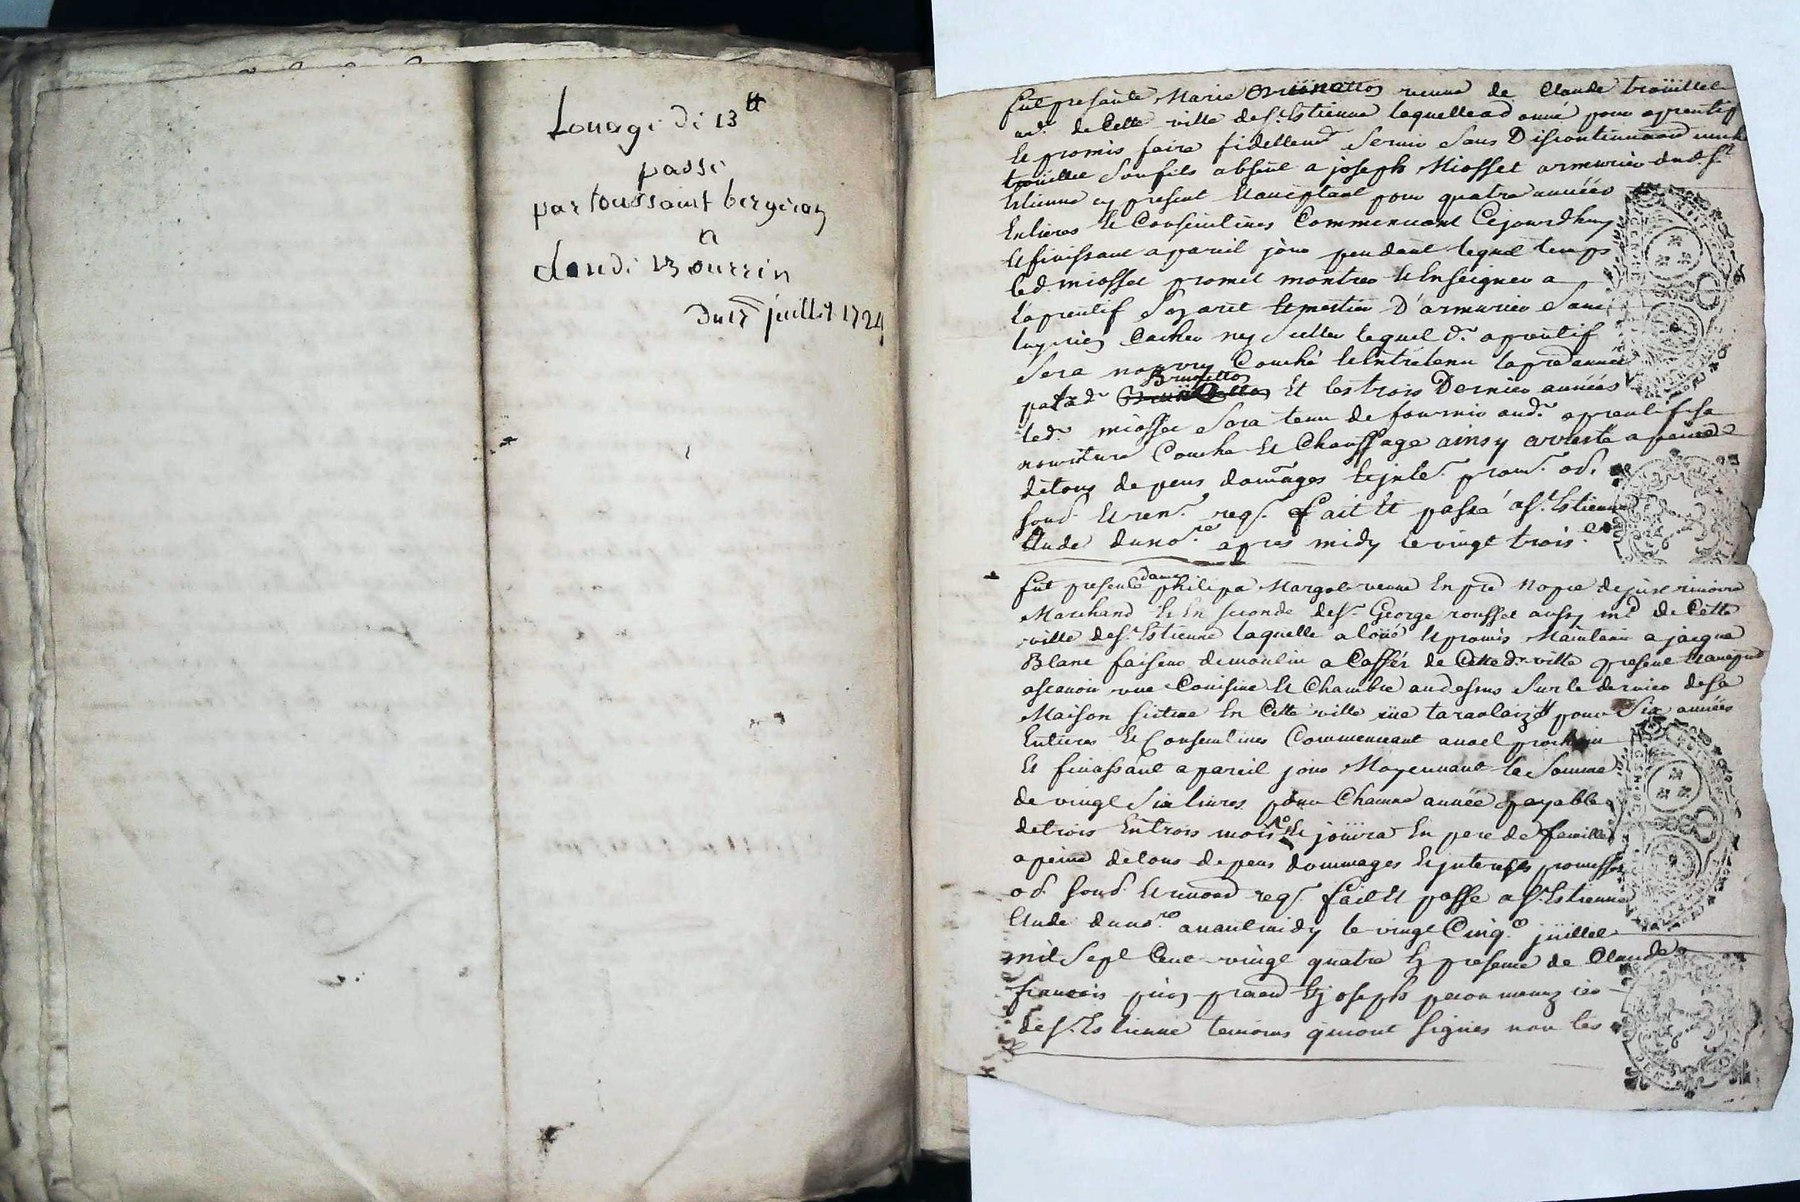 Louage de 13 tt
passé
par toussaint bergeron
a
claude Bourrin
Du 17 juillet 1724
fut presente Marie veuve de Claude trouillet
md. de Cette ville de St. Estienne laquelle a donné pour aprentif
Et promis faire fidellemt. servir sans
trouillet son fils absent a joseph Miosset armurier dud. St.
Estienne cy present Et aceptant pour quatre années
Entieres Et Consecutives Commencant Cejourdhuy
Et finissant a pareil jour pendant lequel temps
led. miosset promet montrer Et Enseigner a
laprentif Son art Et mestier D'armurier Sans
luy rien Cacher ny Celler lequel d. aprentif
Sera nourry Couché Et Entretenu la pre année
par lad. Et les trois Dernier années
led. miosset Sera tenu de fournir aud. aprentif sa
nouriture Couche Et Chauffage ainsy arresté a peine
de tous depens domages Et jnte. prom. ob.
soud. Et ren. req. fait Et passé a St. Estienne
Etude du nore. apres midy le vingt trois e.
fut presente dame philipa Margot veuve En pre nopce de
Marchand Et En seconde de Sr. George rousset aussy md de Cette
ville de St. Estienne laquelle a loüé Et promis Maintenir a jacque
Blanc faiseur de moulin a Caffér de Cette d. ville present Et aceptant
ascavoir une Cuisine Et Chambre au desus Sur le dernier de sa
Maison sictuee En Cette ville rüe pour Six années
Entieres Et Consecutives Commencant a noel prochain
Et finissant a pareil jour Moyennant la Somme
de vingt Six livres pour Chacune année payable
de trois En trois mois Et jouira En pere de famille
a peine de tous depens dommages Et jnterests promesses
ob. soud. Et renond. req. fait Et passé a St. Estienne
Etude du nore. avant midy le vingt Cinq e. juillet
mil Sept Cent vingt quatre En presence de Claude
francois Et joseph peron menuzier
de St. Estienne temoins qui ont signés non les